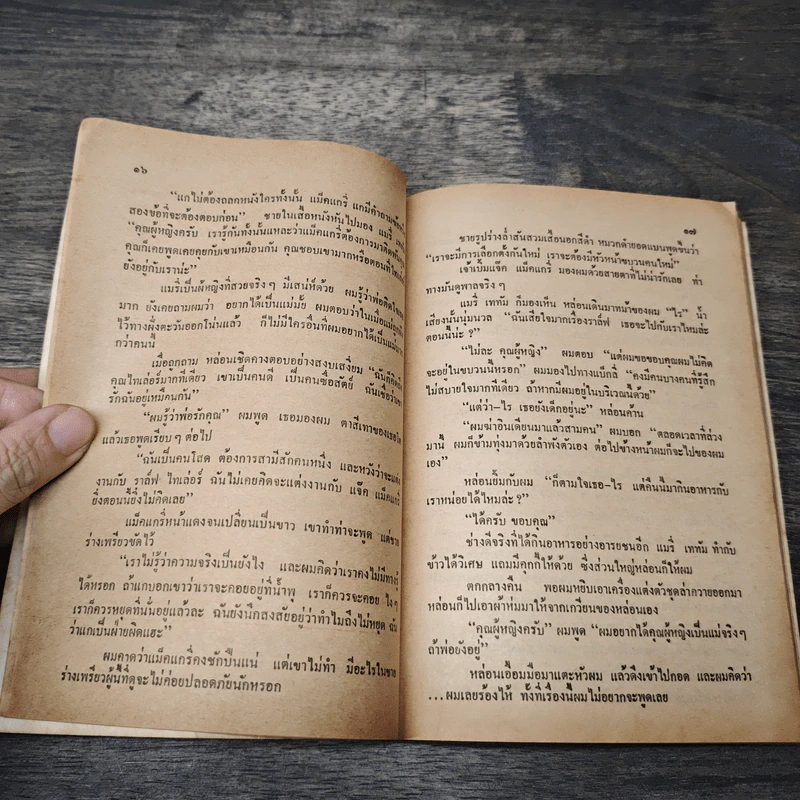 ๑๖
"แกไม่ต้องถลกหนังใครทั้งนั้น แม็คแกรี่ แกมีคำถาม
สองข้อที่จะต้องตอบก่อน" ชายในเสื้อหนังหันไปมอง แมรี่
"คุณผู้หญิงครับ เรารู้กันทั้งนั้นแหละว่าแม็คแกรี่ต้องการมาติดพัน
คุณก็เคยพูดเคยคุยกับเขาเหมือนกัน คุณชอบเขามากหรือตอนที่
ยังอยู่กับเราน่ะ"
แมรี่เป็นผู้หญิงที่สวยจริงๆ มีเสน่ห์ด้วย ผมรู้ว่าพ่อติดใจ
มาก ยังเคยถามผมว่า อยากได้เป็นแม่มั้ย ผมตอบว่าในเมื่อแม่
ไว้ทางฝั่งตะวันออกโน่นแล้ว ก็ไม่มีใครอื่นที่ผมอยากได้เป็นแม่
กว่าคนนี้
เมื่อถูกถาม หล่อนเชิดคางตอบอย่างสงบเสงี่ยม "ฉันก็คิดถึง
คุณไทเล่อร์มากทีเดียว เขาเป็นคนดี เป็นคนซื่อสัตย์ ฉันเชื่อว่าเขา
รักฉันอยู่เหมือนกัน"
"ผมรู้ว่าพ่อรักคุณ" ผมพูด เธอมองผม ตาสีเทาของเธอ
แล้วเธอพูดเรียบๆ ต่อไป
"ฉันเป็นคนโสด ต้องการสามีสักคนหนึ่ง และหวังว่าจะแต่ง
งานกับ ราล์ฟ ไทเล่อร์ ฉันไม่เคยคิดจะแต่งงานกับ แจ๊ค แม็คแกรี่
ยิ่งตอนนี้ยิ่งไม่คิดเลย"
แม็คแกรี่หน้าแดงจนเปลี่ยนเป็นขาว เขาทำท่าจะพูด แต่ชาย
ร่างเพรียวขัดไว้
"เราไม่รู้ว่าความจริงเป็นยังไง และผมคิดว่าเราคงไม่มีทางรู้
ได้หรอก ถ้าแกบอกเขาว่าเราจะคอยอยู่ที่น้ำพุ เราก็ควรจะคอย ไงๆ
เราก็ควรหยุดที่นั่นอยู่แล้วละ ฉันยังนึกสงสัยอยู่ว่าทำไมถึงไม่หยุด ฉัน
ว่าแกเป็นฝ่ายผิดแฮะ"
ผมคาดว่าแม็คแกรี่คงชักปืนแน่ แต่เขาไม่ทำ มีอะไรในชาย
ร่างเพรียวผู้นี้ที่ดูจะไม่ค่อยปลอดภัยนักหรอก
๑๗
ชายรูปร่างล่ำสันสวมเสื้อนอกสีดำ หมวกดำยอดแบนพูดขึ้นว่า
"เราจะมีการเลือกตั้งกันใหม่ เราจะต้องมีหัวหน้าขบวนคนใหม่"
เจ้าเบิ้มแจ๊ค แม็คแกรี่ มองผมด้วยสายตาที่ไม่น่ารักเลย ทำ
ทางมันดูพาลจริงๆ
แมรี่ เททัม ก็มองเห็น หล่อนเดินมาหน้าของผม "ไร" น้ำ
เสียงนั้นนุ่มนวล "ฉันเสียใจมากเรื่องราล์ฟ เธอจะไปกับเราไหมล่ะ
ตอนนี้น่ะ ?"
"ไม่ละ คุณผู้หญิง" ผมตอบ "แต่ผมขอขอบคุณผมไม่คิด
จะอยู่ในขบวนนี้หรอก" ผมมองไปทางแบ๊กลี่ "คงมีคนบางคนที่รู้สึก
ไม่สบายใจมากทีเดียว ถ้าหากมีผมอยู่ในบริเวณนี้ด้วย"
"แต่ว่า-ไร เธอยังเด็กอยู่นะ" หล่อนค้าน
"ผมฆ่าอินเดียนมาแล้วสามคน" ผมบอก "ตลอดเวลาที่ล่วง
มานี้ ผมก็ข้ามทุ่งมาด้วยลำพังตัวเอง ต่อไปข้างหน้าผมก็จะไปของผม
เอง"
หล่อนยิ้มกับผม "ก็ตามใจเธอ-ไร แต่คืนนี้มากินอาหารกับ
เราหน่อยได้ไหมล่ะ ?"
"ได้ครับ ขอบคุณ"
ช่างดีจริงที่ได้กินอาหารอย่างอารยชนอีก แมรี่ เททัม ทำกับ
ข้าวได้วิเศษ แถมมีคุกกี้ให้ด้วย ซึ่งส่วนใหญ่หล่อนก็ให้ผม
ตกกลางคืน พอผมหยิบเอาเครื่องแต่งตัวชุดล่าควายออกมา
หล่อนก็ไปเอาผ้าห่มมาให้จากเกวียนของหล่อนเอง
"คุณผู้หญิงครับ" ผมพูด "ผมอยากได้คุณผู้หญิงเป็นแม่จริงๆ
ถ้าพ่อยังอยู่"
หล่อนเอื้อมมือมาแตะหัวผม แล้วดึงเข้าไปกอด และผมคิดว่า
...ผมเลยร้องไห้ ทั้งที่เรื่องนี้ผมไม่อยากจะพูดเลย